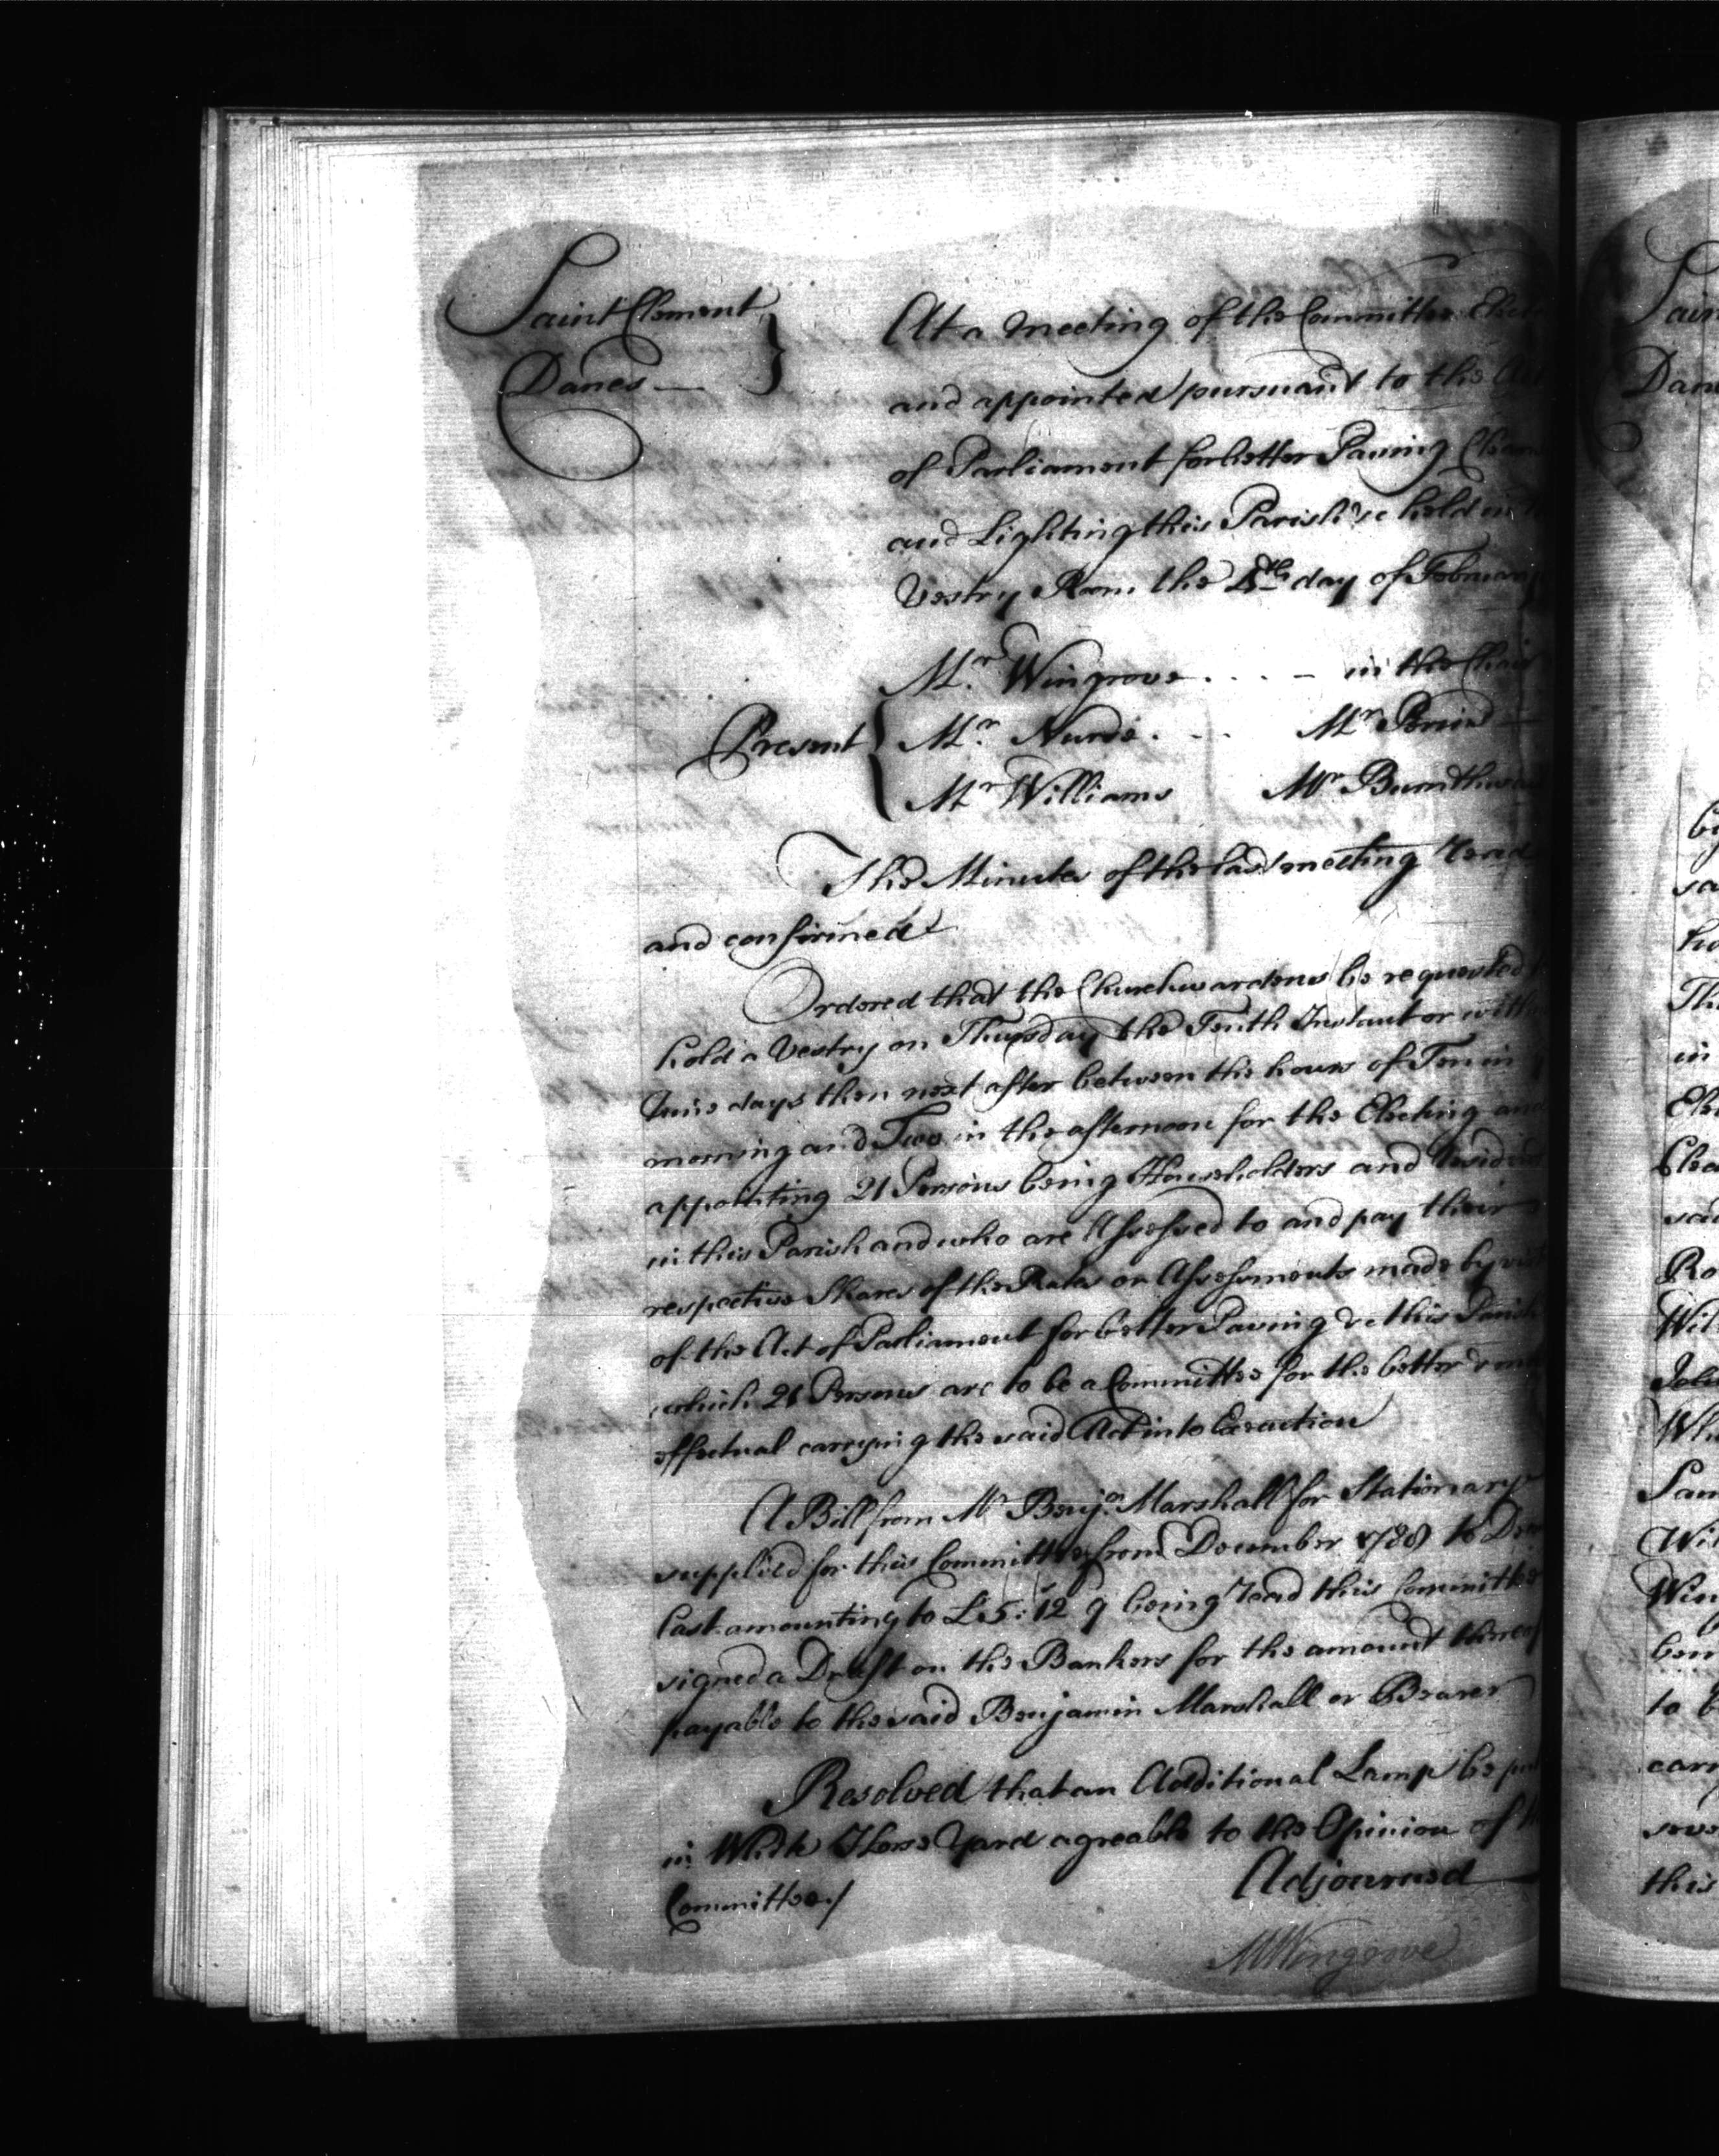 Saint Clement
Danes —
At a Meeting of the Committee Elect
and appointed pursuant to the Act
of Parliament for better Paving Clean
and Lighting this Parish &c held in
Vestry Room the day of February
Mr. Wingrove . . . . – in the Chair
Present Mr. Nurse . . . Mr
Mr Williams Mr
The Minutes of the last meeting read
and confirmed
Ordered that the Churchwardens be requested
hold a Vestry on Thursday the Tenth Instant or with
days then next after between the hours of Ten in
morning and Two in the afternoon for the Electing and
appointing 21 Persons being Householders and
in this Parish and who are Assessed to and pay their
respective Shares of the Rates or Assessments made by
of the Act of Parliament for better Paving &c this Parish
which 21 Persons are to be a Committee for the better & more
effectual carrying the said Act into Execution
A Bill from Mr Benjn. Marshall for Stationary
supplied for this Committee from December 1788 to Decr
last amounting to £5: 12 9 being read this Committee
signed a Draft on the Bankers for the amount thereof
payable to the said Benjamin Marshall or Bearer
Resolved that an Additional Lamp be put
in White Horse Yard agreable to the Opinion of
Committee./
Adjourned
MWingrove
Sain
Dan
by
sa
ho
Th
in
Ele
Clea
said
Ro
Wil
John
Wh
Sam
Wil
Win
bein
to b
carr
seve
this